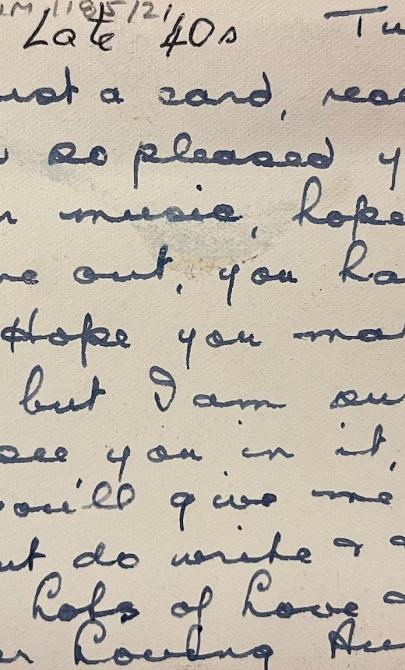 Late 40s Tu
ust a card, rec
so pleased y
music, hope
ve out, you ha
Hope you ma
but I am su
see you in it,
you'll give me
ut do write &
Lots of Love &
Loving Au